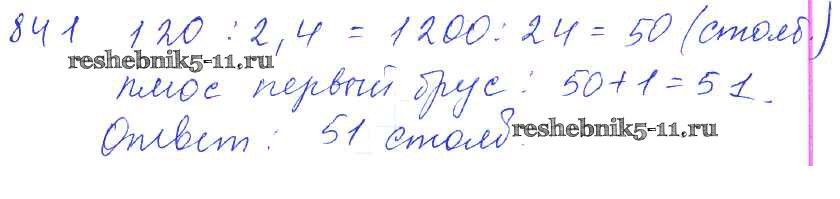 841 120 : 2,4 = 1200 : 24 = 50 (столб.)
reshebnik5-11.ru
плюс первый брус : 50+1=51.
Ответ : 51 столб. reshebnik5-11.ru